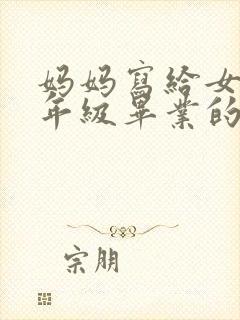 妈妈寫給女
年級畢業的
宗朋